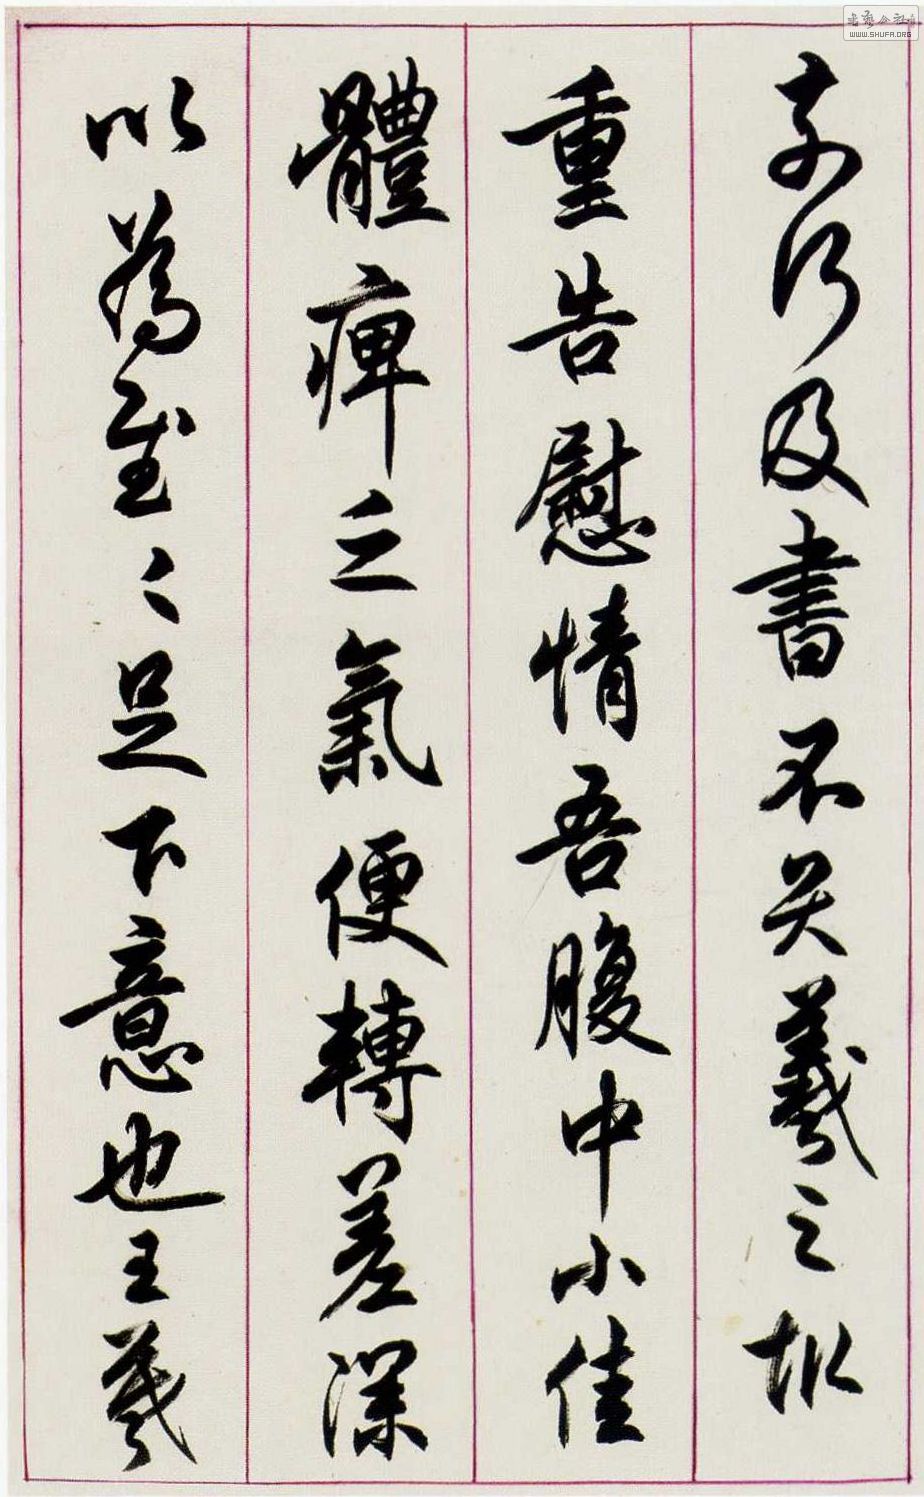 行及書不具羲之报
重告慰情吾腹中小佳
體痺乏氣便轉差深
以為〻足下意也王羲